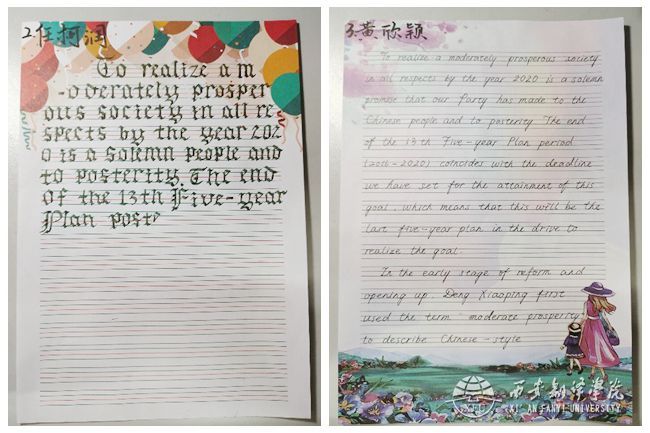 2.任柯润
To realize a m
-oderately prosper
ous society in all re
spects by the year 202
0 is a solemn people and
to posterity. The end
of the 13th Five-year
Plan poste
3.黄欣颖
To realize a moderately prosperous society
in all respects by the year 2020 is a solemn
promise that our Party has made to the
Chinese people and to posterity The end
of the 13th Five-year Plan period
(2016-2020) coincides with the deadline
we have set for the attainment of this
goal, which means that this will be the
last five-year plan in the drive to
realize the goal.
In the early stage of reform and
opening up, Deng Xiaoping first
used the term moderate prosperity
to describe Chinese-style
西安翻译学院
XI'AN FANYI UNIVERSITY